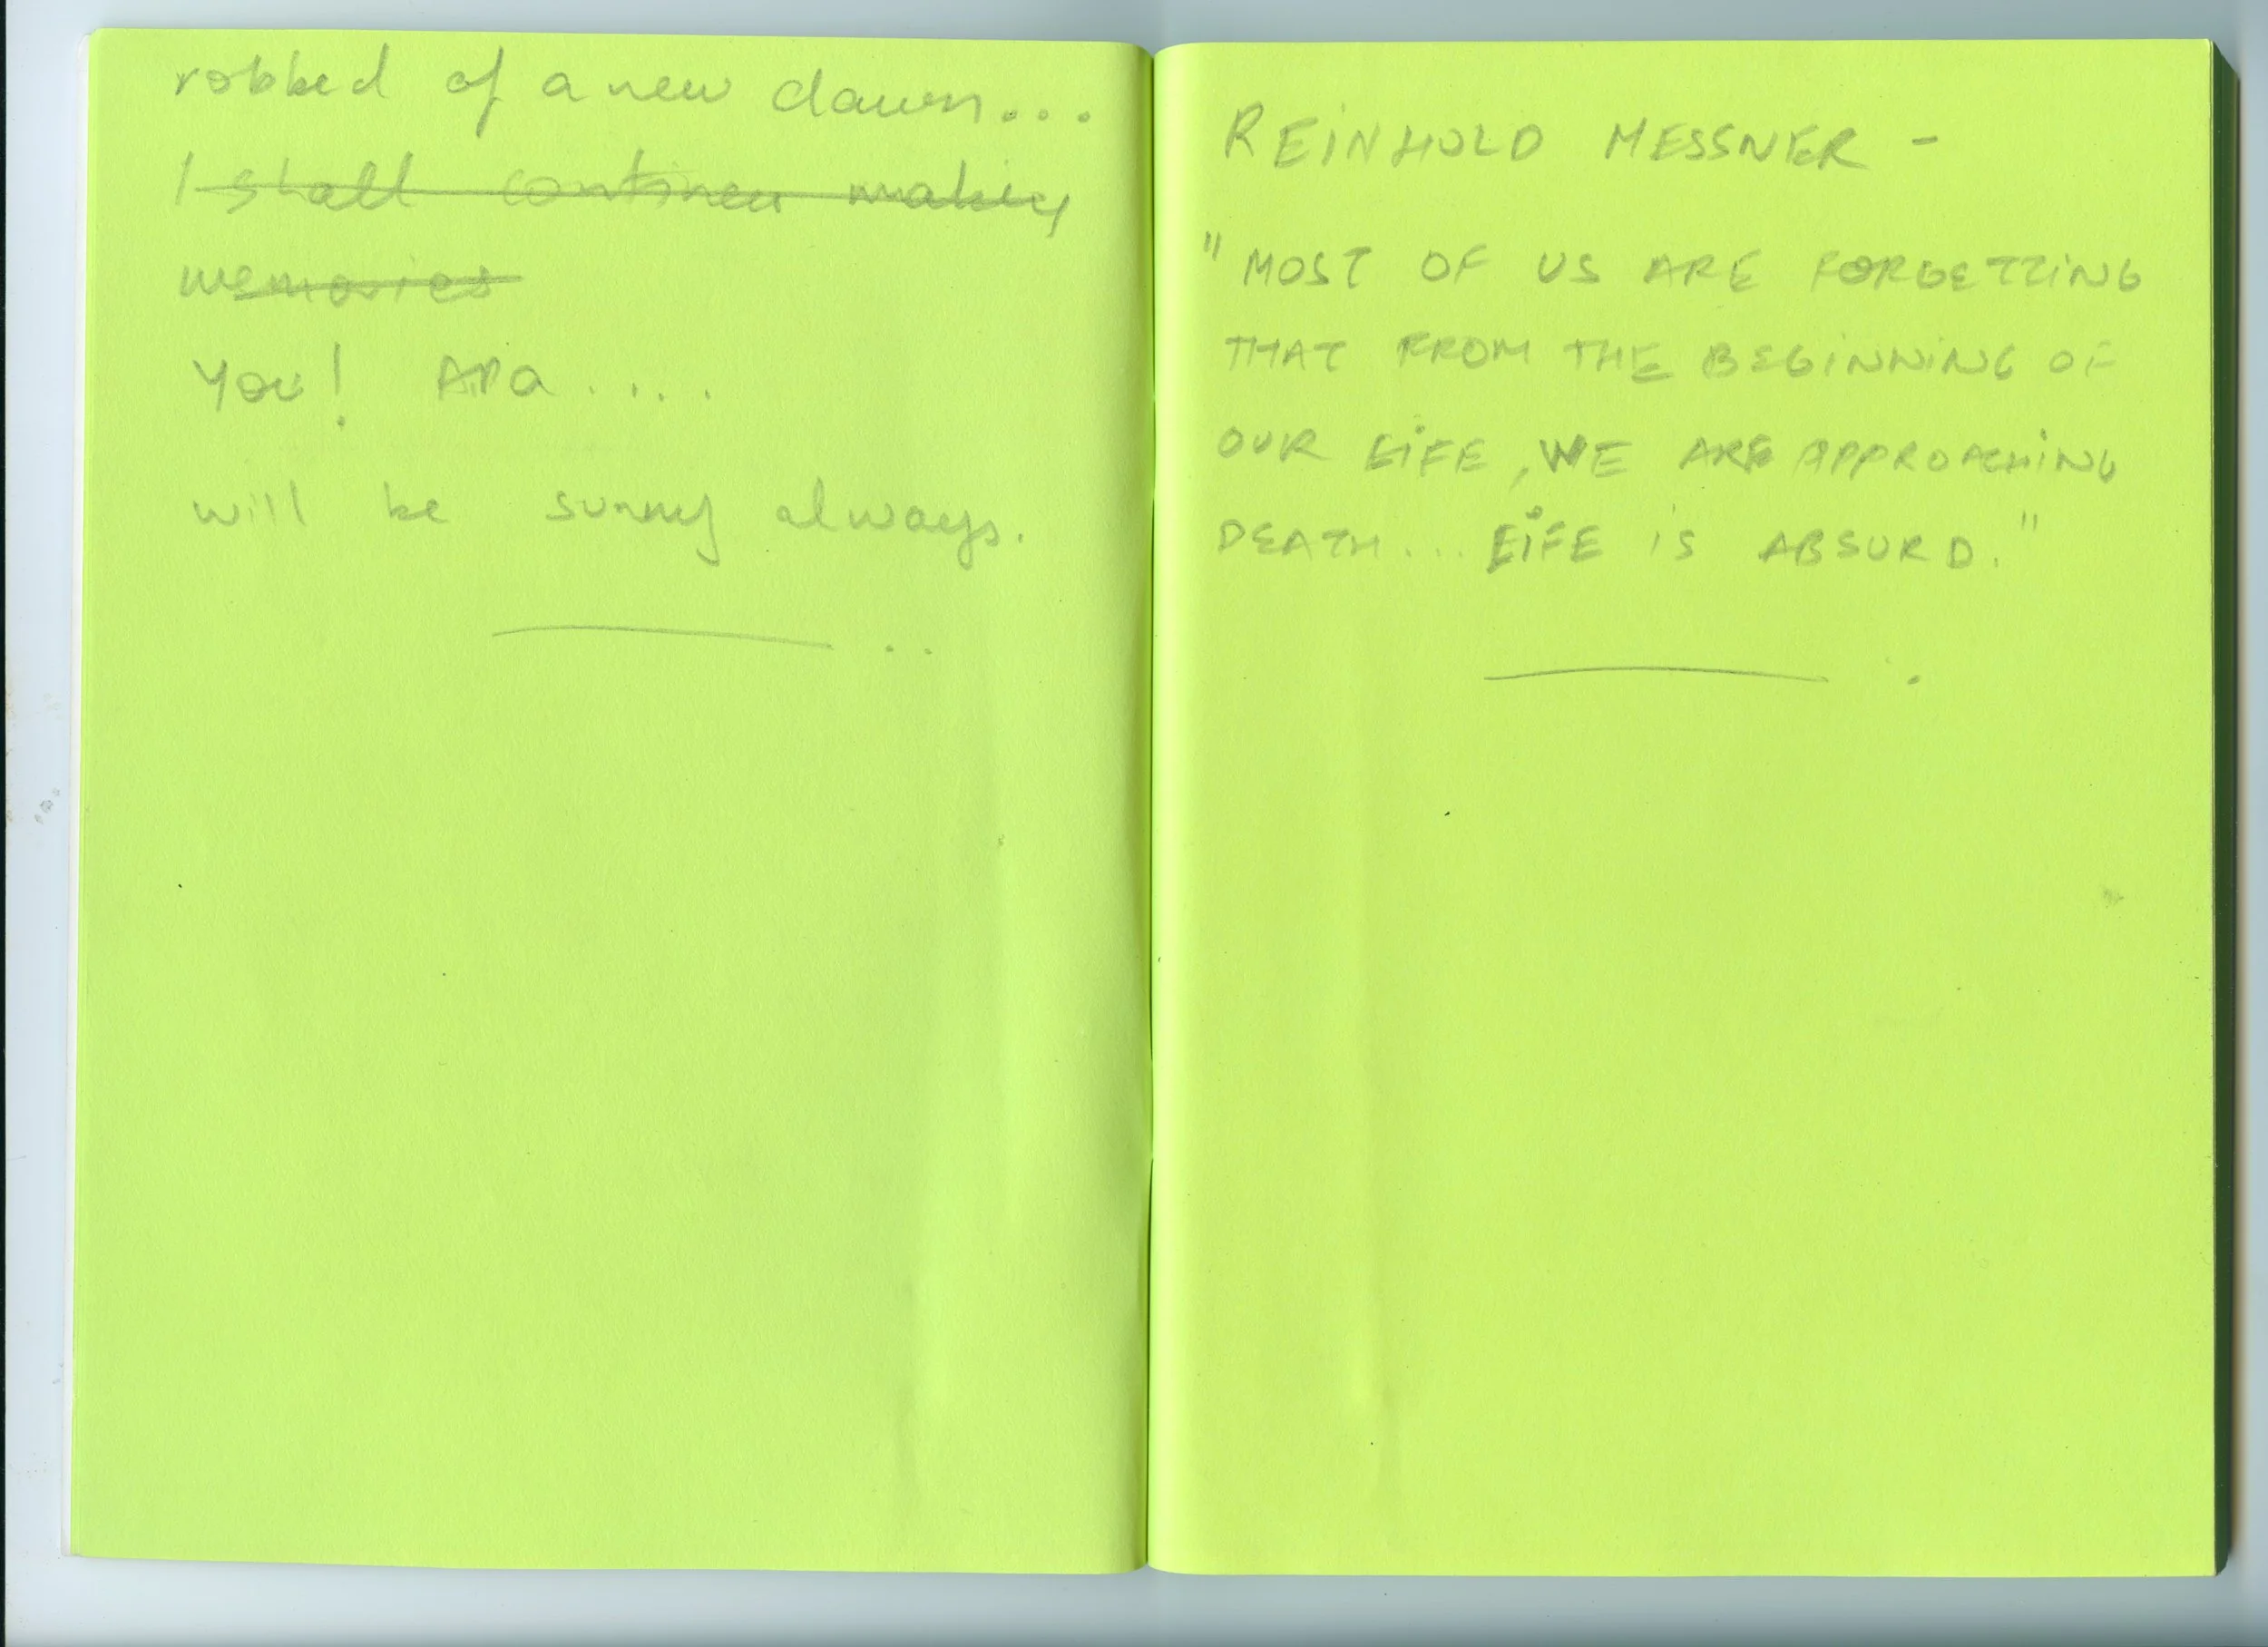 robbed of a new dawn...
I shall continue making
memories
You! APA....
will be sunny always.
REINHOLD MESSNER -
"MOST OF US ARE FORGETTING
THAT FROM THE BEGINNING OF
OUR LIFE, WE ARE APPROACHING
DEATH... LIFE IS ABSURD."